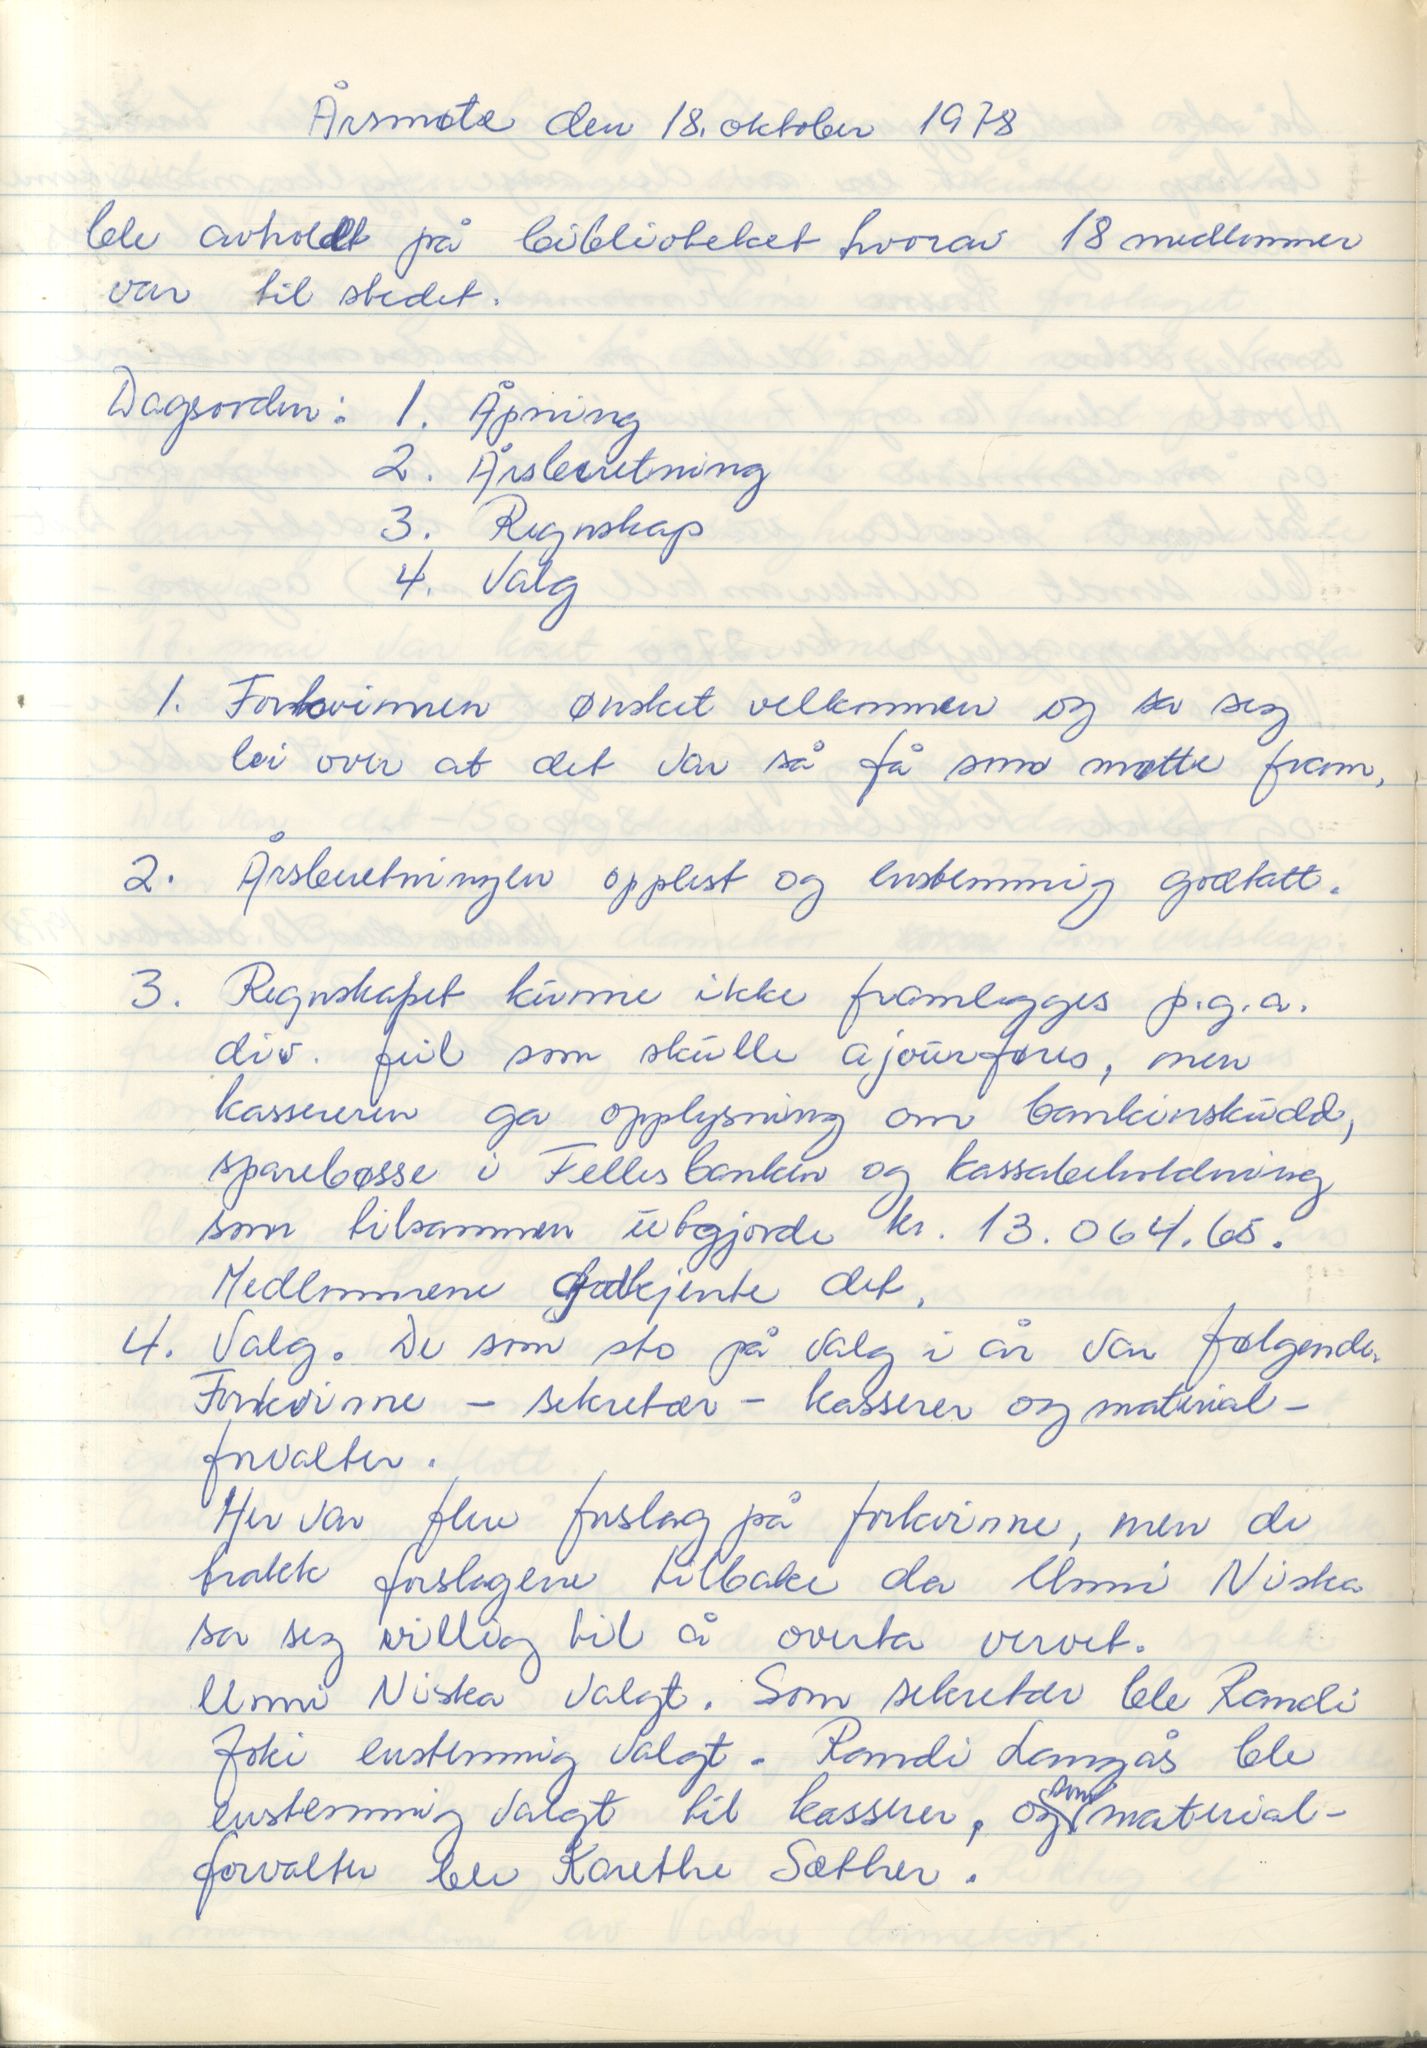 Årsmøte den 18. oktober 1978
ble avholdt på biblioteket hvorav 18 medlemmer
var til stedet.
Dagsorden: 1. Åpning
2. Årsberetning
3. Regnskap
4. Valg
1. Forkvinnen ønsket velkommen og sa seg
lei over at det var så få som møtte fram.
2. Årsberetningen opplest og enstemmig godtatt.
3. Regnskapet kunne ikke framlegges p.g.a.
div. feil som skulle ajourføres, men
kassereren ga opplysning om bankinskudd,
sparebøsse i Fellesbanken og kassabeholdning
som tilsammen utgjorde kr. 13.064.65.
Medlemmene godkjente det.
4. Valg. De som sto på valg i år var følgende.
Forkvinne - sekretær - kasserer og material-
forvalter.
Her var flere forslag på forkvinne, men de
trakk forslagene tilbake da Unni Niska
sa seg villig til å overta vervet.
Unni Niska valgt. Som sekretær ble Randi
Joki enstemmig valgt. Randi Langås ble
enstemmig valgt til kasserer, og som material-
forvalter ble Karethe Sæther.